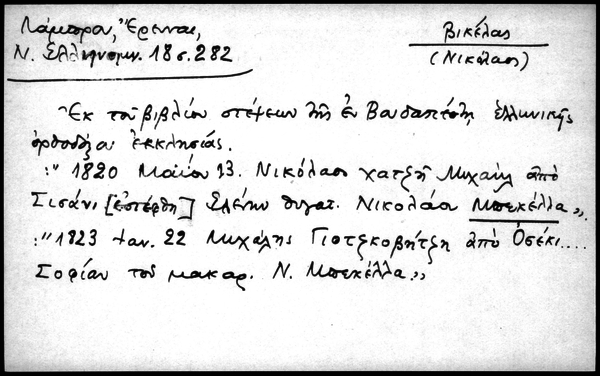 Λάμπρου, Ἔρευναι,
Ν. Ἑλληνομν. 18 σ. 282
Βικέλας
(Νικόλαος)
Ἐκ τοῦ βιβλίου στέψεων τῆς ἐν Βουδαπέστῃ ἑλληνικῆς
ὀρθοδόξου ἐκκλησίας.
:" 1820 Μαΐου 13. Νικόλαος χατζῆ Μιχαὴλ ἀπὸ
Σισάνι [ἐστέφθη] Ἑλένην θυγατ. Νικολάου Μπεκέλλα".
:" 1823 Ἰαν. 22 Μιχάλης Γιοτζκοβήτζη ἀπὸ Ὀσέκι....
Σοφίαν τοῦ μακαρ. Ν. Μπεκέλλα"